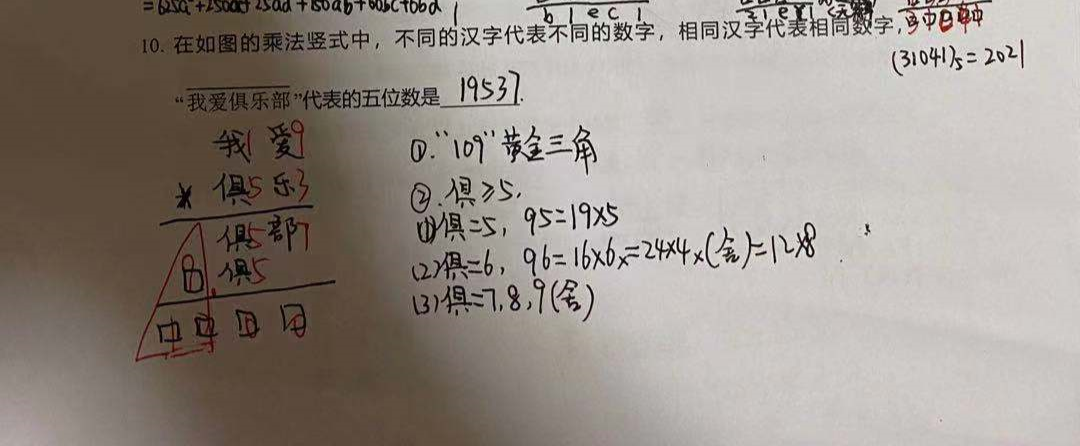 =625a²+250ac+25ad+150ab+60bc+6bd
b 1 e c 1
10. 在如图的乘法竖式中，不同的汉字代表不同的数字，相同汉字代表相同数字，
(31041)₅=2021
“我爱俱乐部”代表的五位数是 19537.
我1 爱9
× 俱5 乐3
俱5 部7
口 俱5
口 口 口 口
①."109"黄金三角
②.俱≥5.
(1)俱=5, 95=19×5
(2)俱=6, 96=16×6×=24×4×(舍)=12×8
(3)俱=7,8,9(舍)